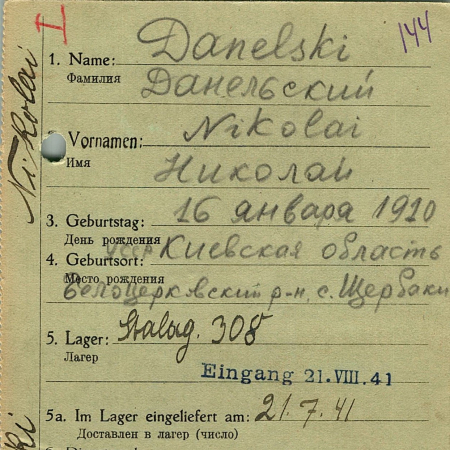 I
144
Nikolai
Danelski
1. Name:
Фамилия
Данельский
Nikolai
Vornamen:
Имя
Николай
3. Geburtstag: 16 января 1910
День рождения
УССР Киевская область
4. Geburtsort:
Место рождения
Белоцерковский р-н, с. Щербаки
5. Lager: Stalag. 308
Лагер
Eingang 21. VIII. 41
5a. Im Lager eingeliefert am: 21.7.41
Доставлен в лагер (число)